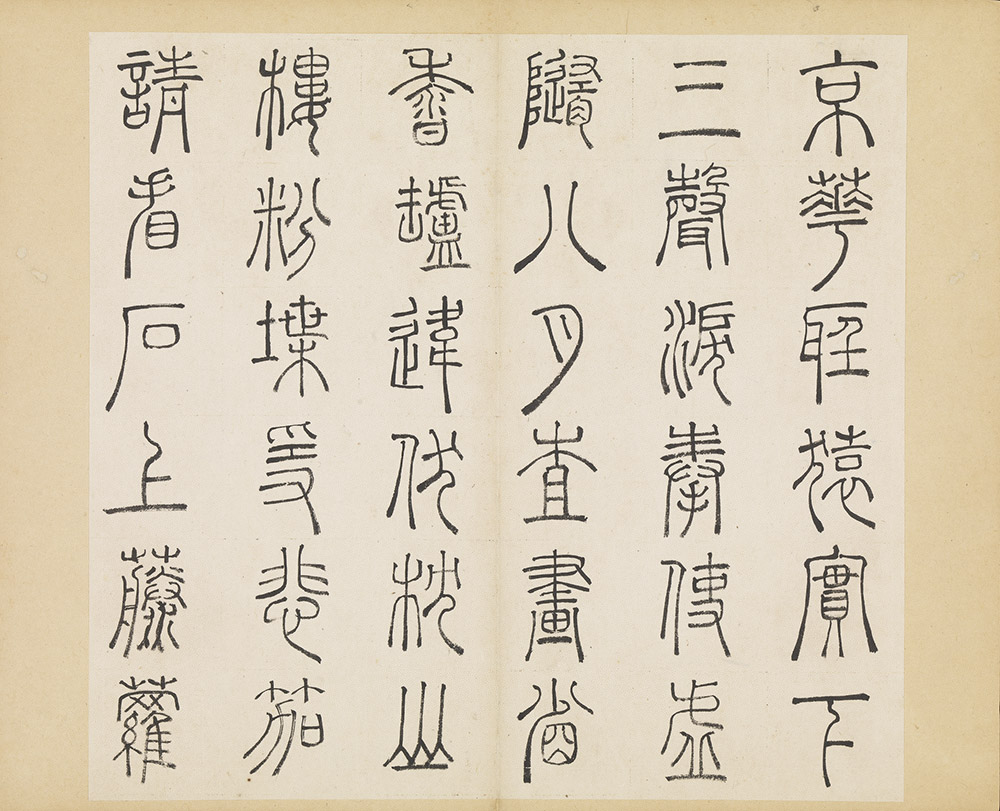 京華聽猿實下
三聲淚奉使虛
隨八月查畫省
香爐違伏枕山
樓粉堞隱悲笳
請看石上藤蘿